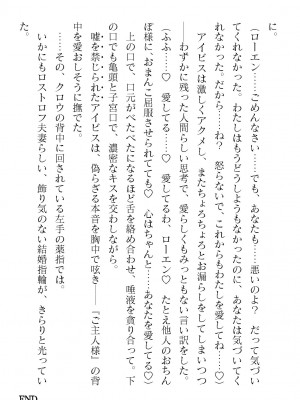 に。
（ローエン……ごめんなさい……でも、あなたも……悪いのよ？　だって気づい
てくれなかった。わたしはもうどうしようもなかったのに、あなたは気づいてく
れなかった。だから……ね？　怒らないで、これからもわたしを愛してね♡）
アイビスは激しくアクメし、またちょろちょろとお漏らしをしてしまいつつ
――わずかに残った人間らしい思考で、愛らしくもみっともない言い訳をした。
（ふふ……♡　愛してる……♡　愛してるわ、ローエン♡　たとえ他人のおちん
ぽ様に、おまんこ屈服させられても♡　心はちゃんと……あなたを愛してる♡）
上の口で、口元がべたべたになるほど舌を絡め合わせ、唾液を貪り合って。下
の口でも亀頭と子宮口で、濃密なキスを交わしながら。
嘘を禁じられたアイビスは、偽らざる本音を胸中で呟き――『ご主人様』の背
中を愛おしそうに撫でた。
……その、クロウの背中に回されている左手の薬指では。
いかにもロストロフ夫妻らしい、飾り気のない結婚指輪が、きらりと光ってい
た。
END